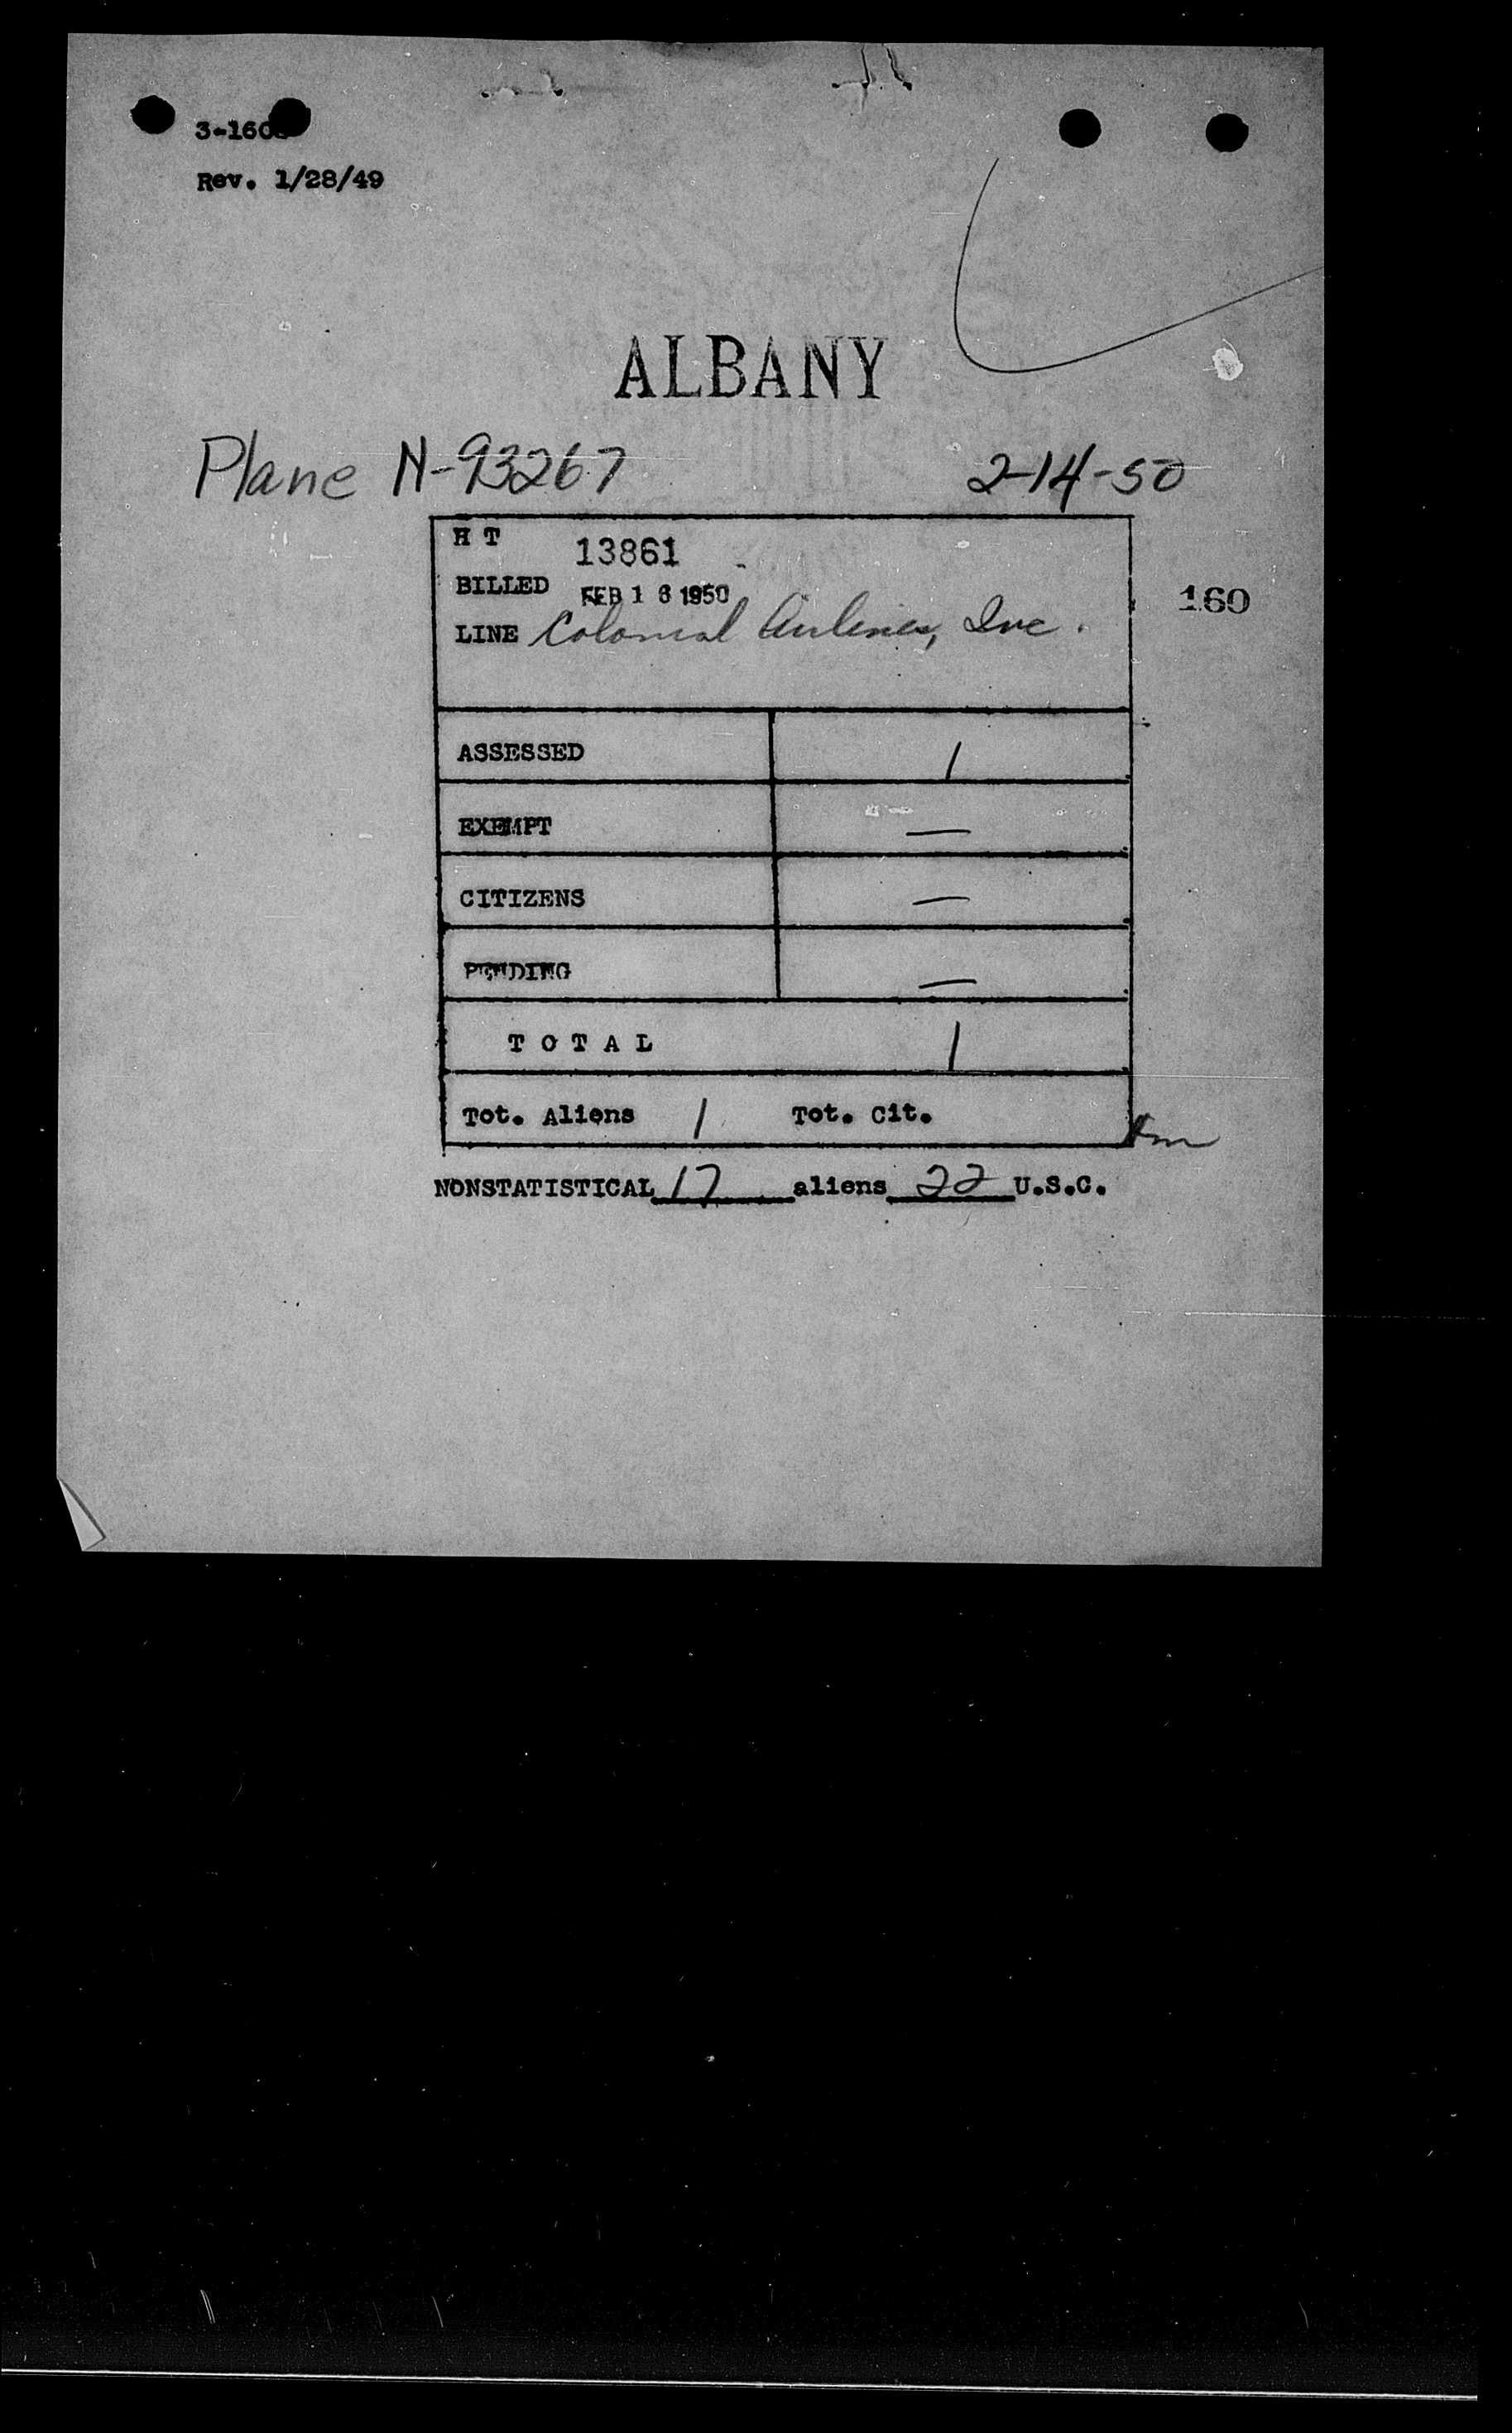 3-160
Rev. 1/28/49
ALBANY
Plane N-93267 2-14-50
H T 13861
BILLED FEB 16 1950 160
LINE Colonial Airlines, Inc.
ASSESSED 1
EXEMPT —
CITIZENS —
PENDING —
T O T A L 1
Tot. Aliens 1 Tot. Cit.
NONSTATISTICAL 17 aliens 22 U.S.C.